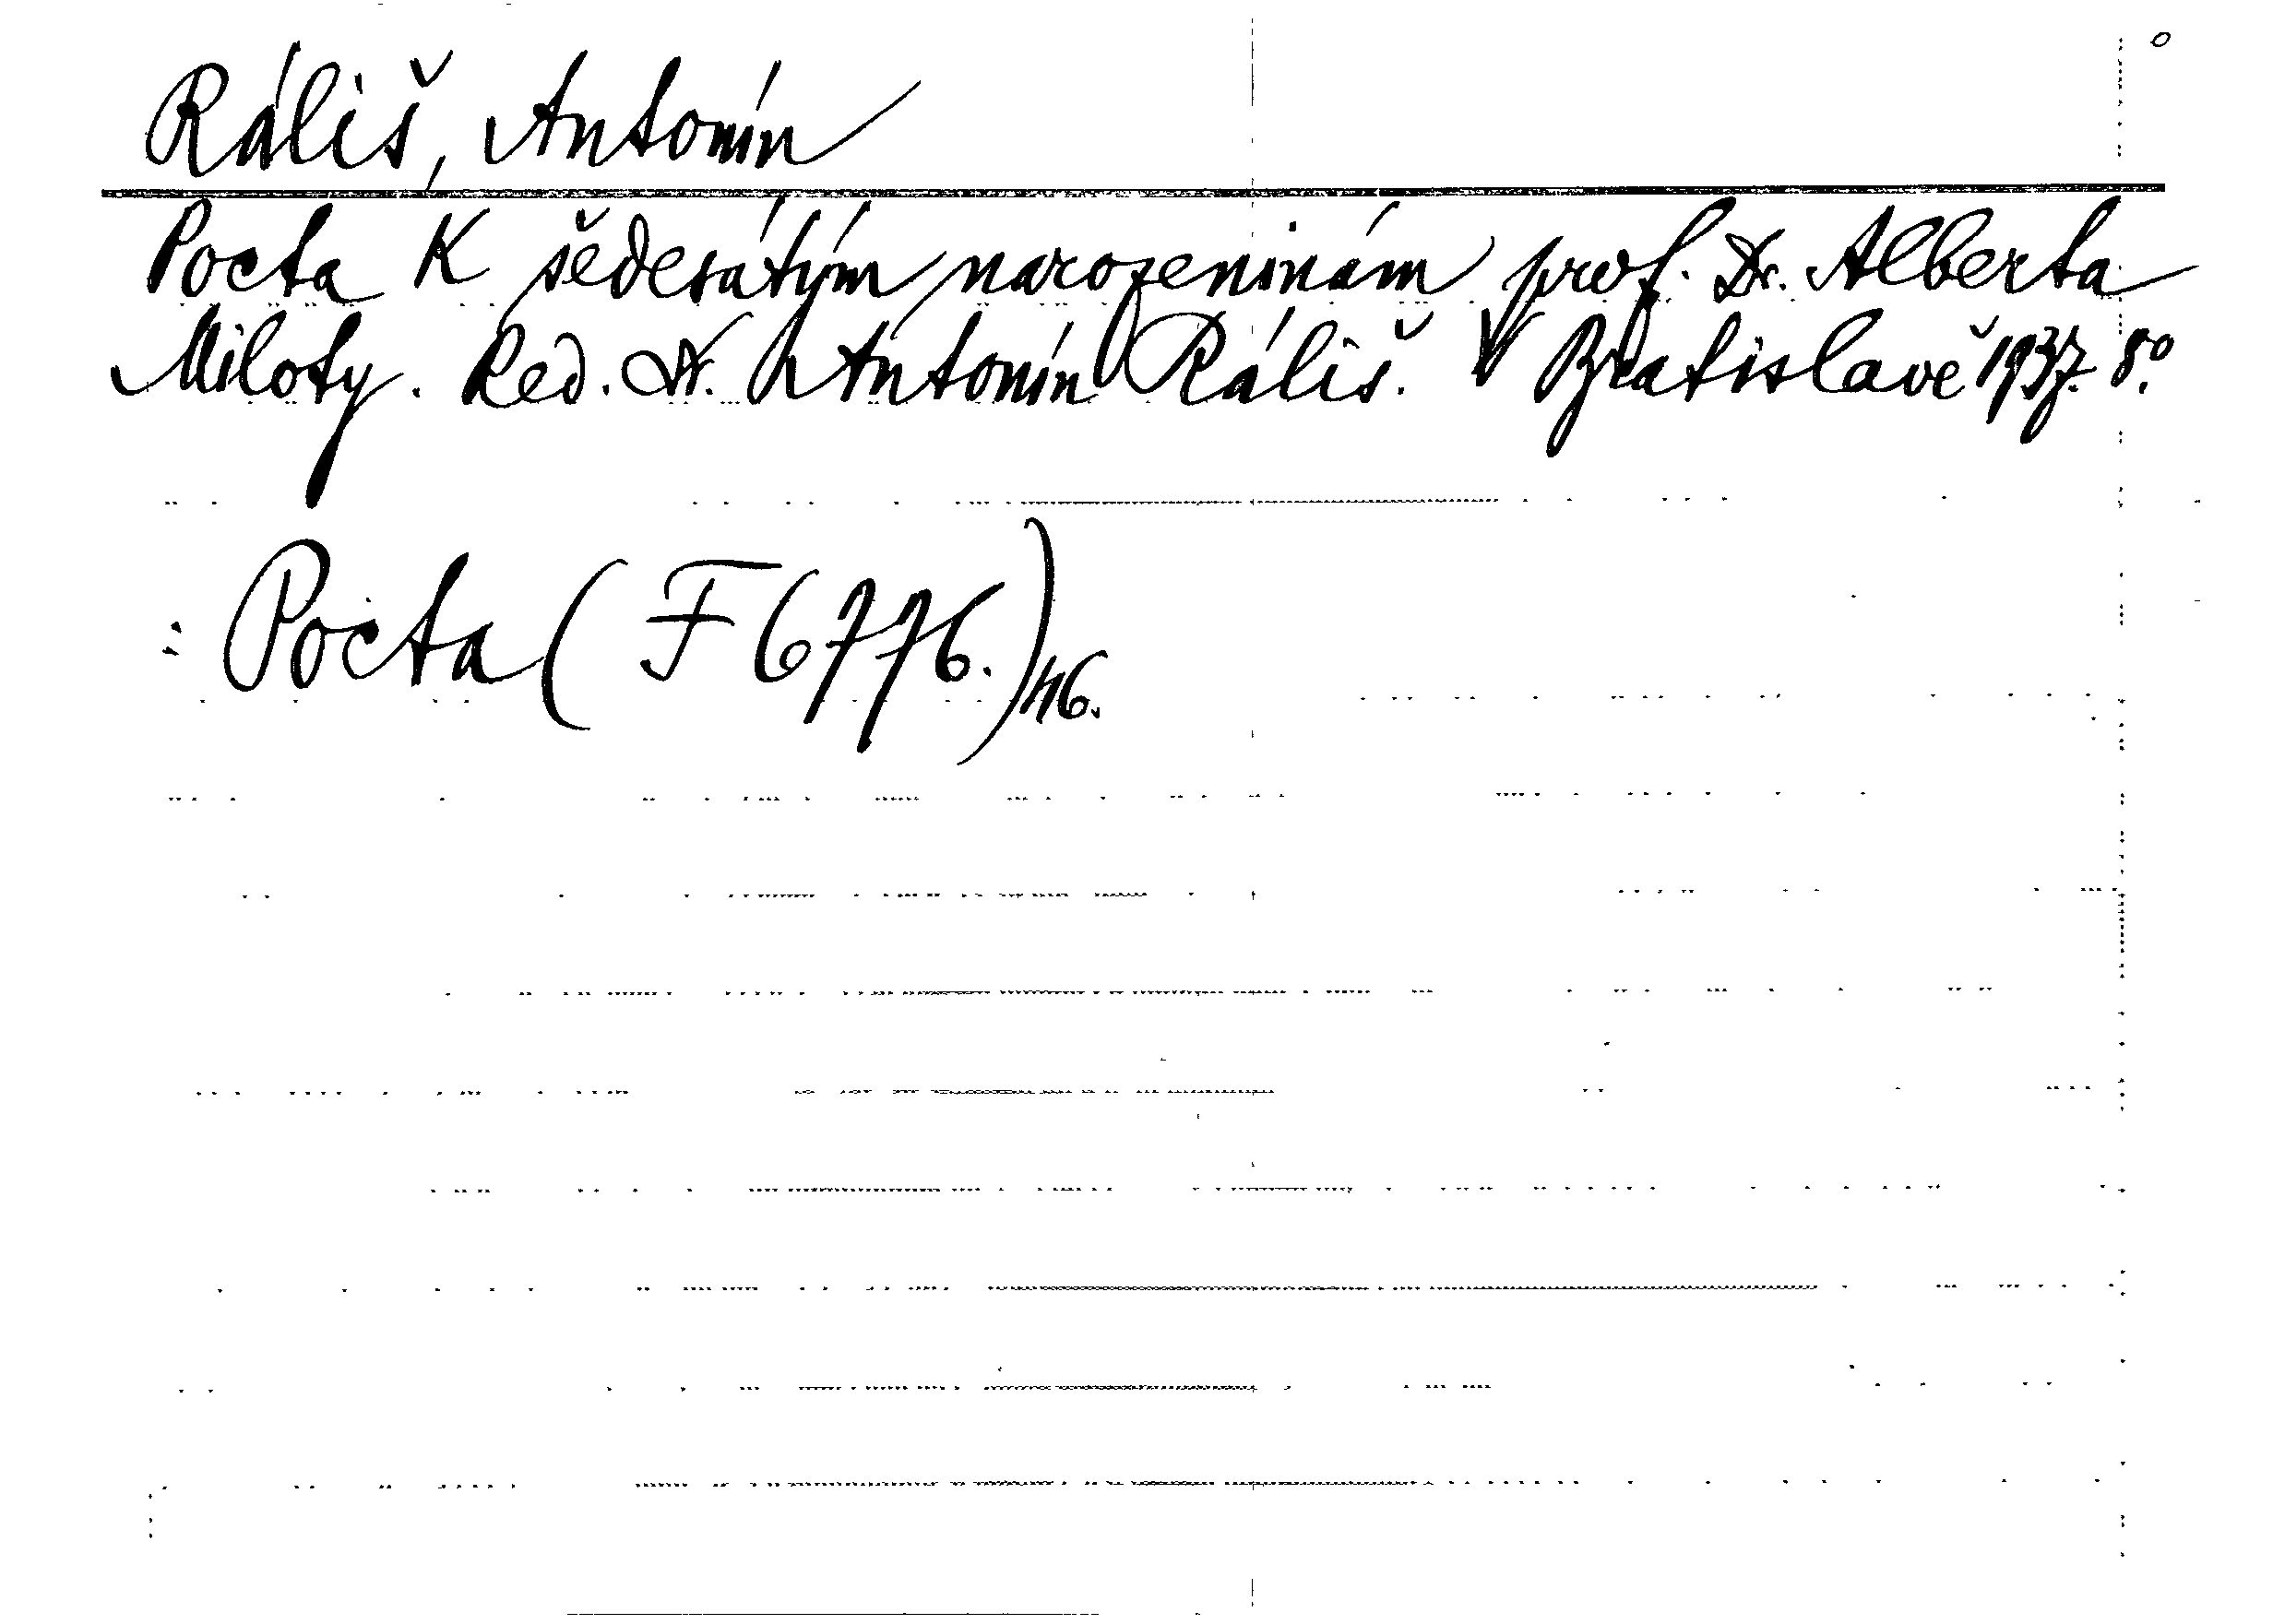 Ráliš, Antonín
Pocta K šedesátým narozeninám prof. Dr. Alberta
Miloty. Red. Dr. Antonín Ráliš. V Bratislavě 1937. 8.º
: Pocta ( F 6776.) 46.